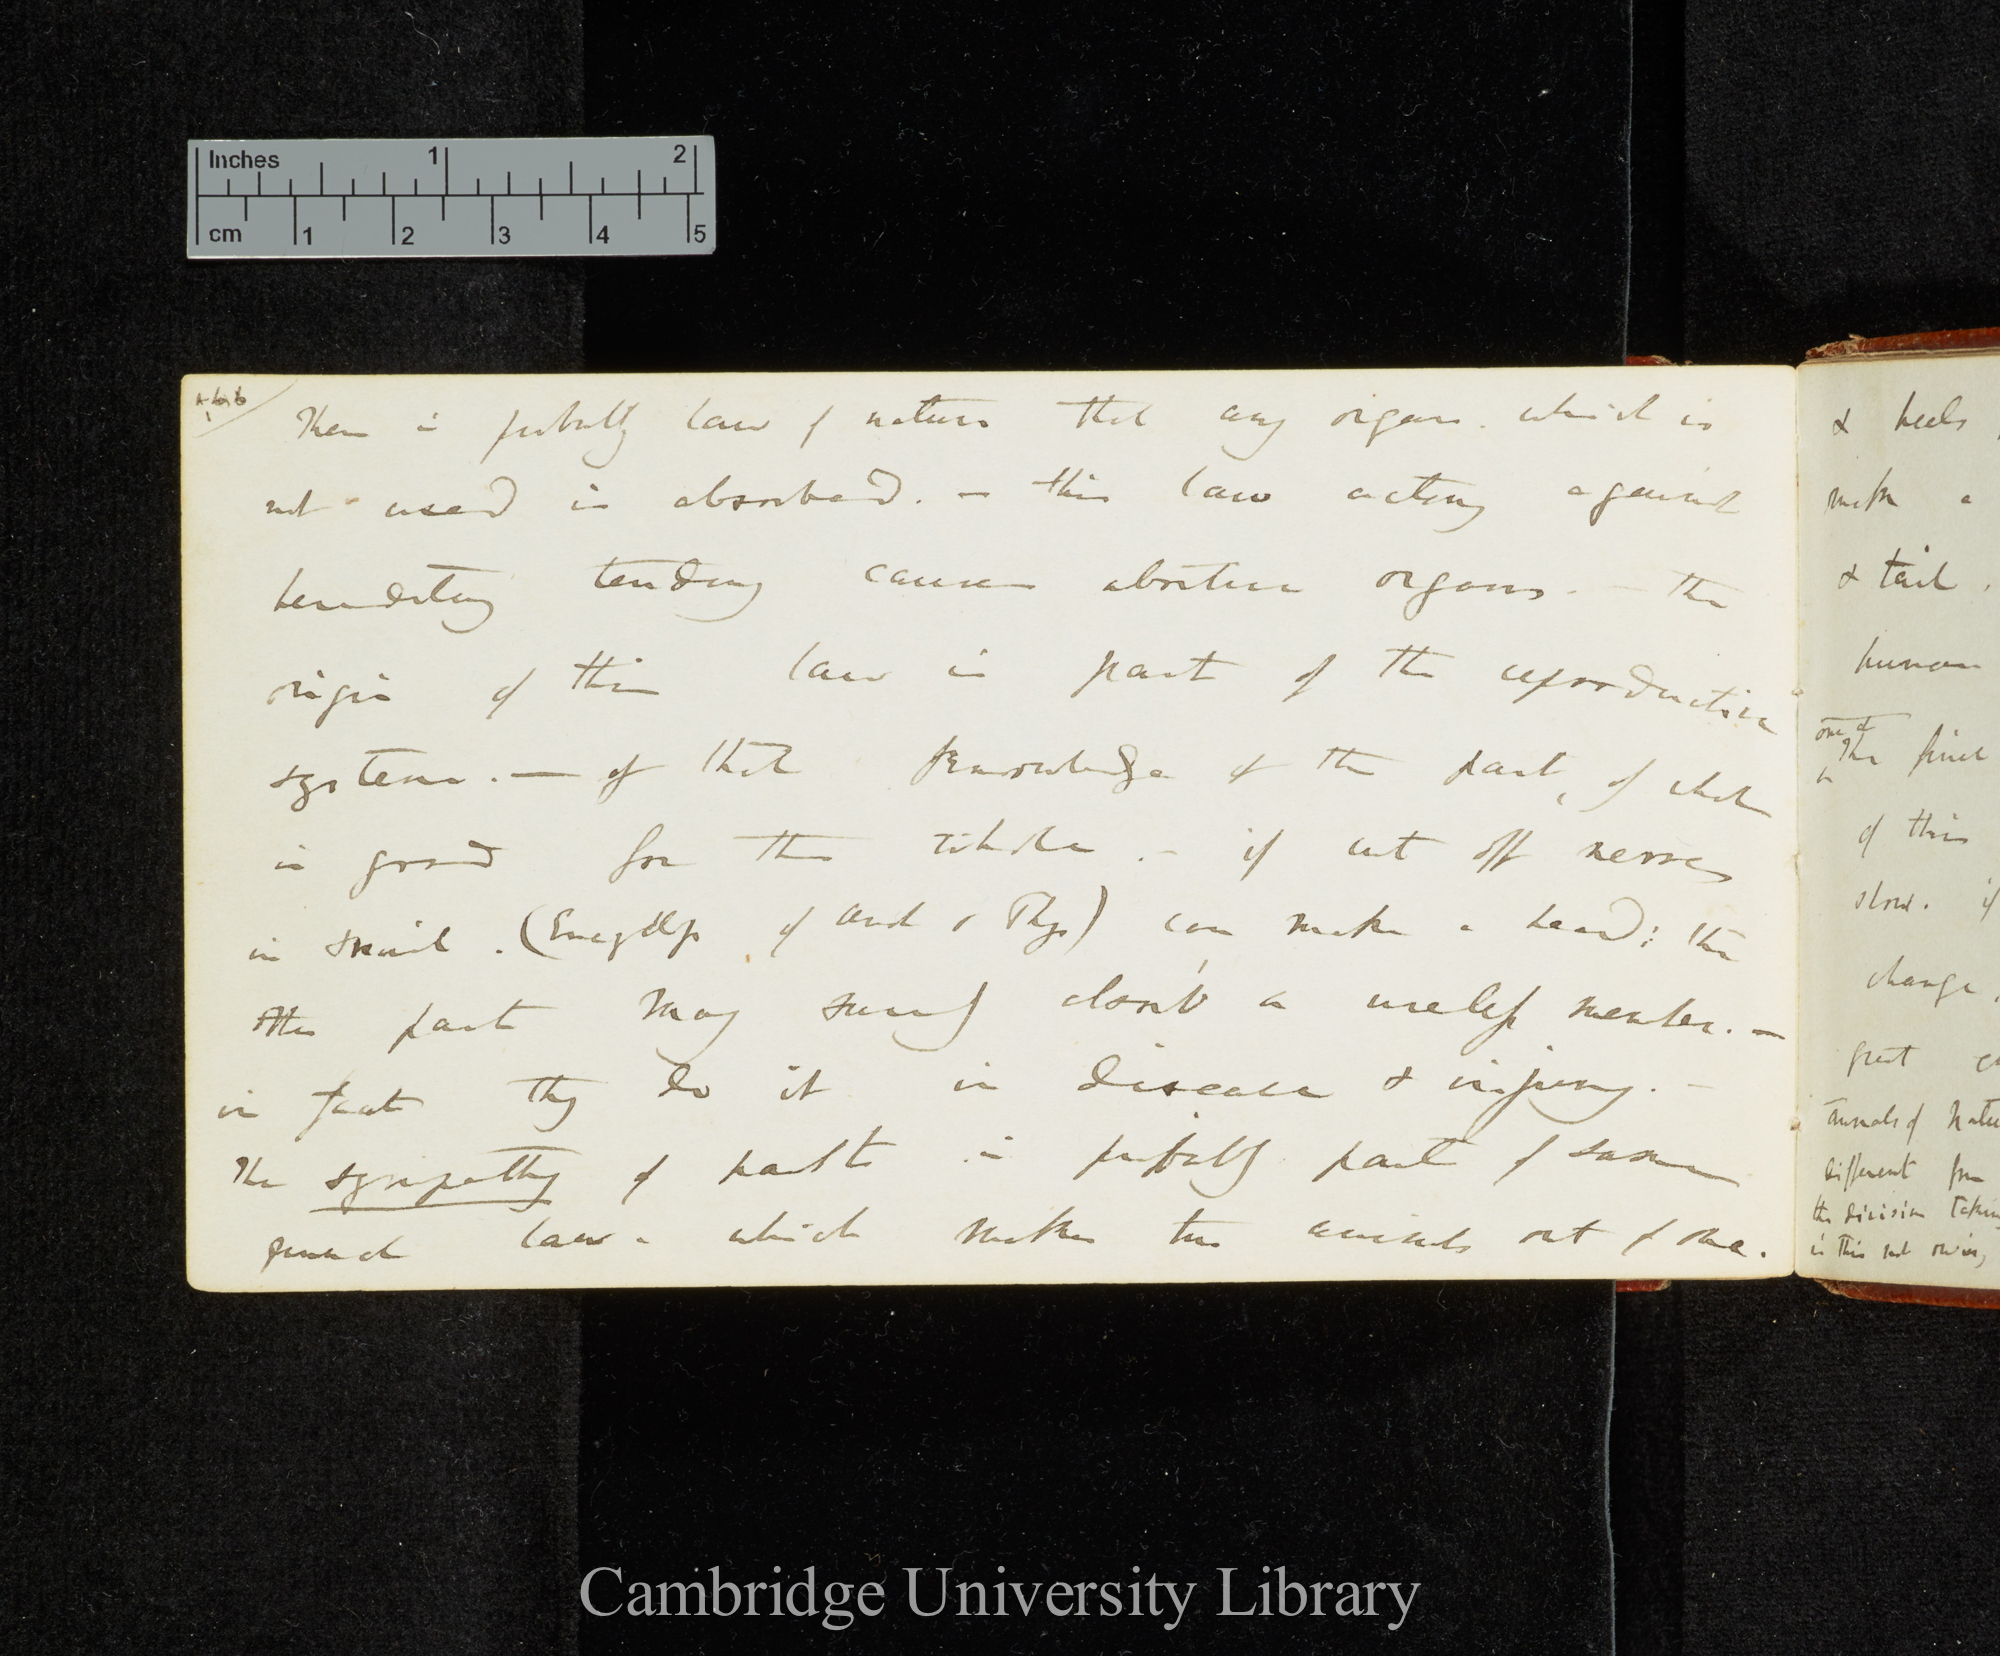 Inches 1 2
cm 1 2 3 4 5
There is probably law of nature that any organ. which is
not used is absorbed. — this law acting against
hereditary tendency causes abortive organs. — the
origin of this law is part of the reproductive
system. — of that knowledge of the part, of what
is good for the whole. — if cut off nerves
in snail. (Encyclop of Anat & Phys) can make a head: the
other part may surely absorb a useless member. —
in fact they do it in disease & injury. —
The sympathy of parts is probably part of same
general law. which makes two animals out of one.
& heels
make a
& tail.
human
one of
the final
of this
slow. if
change,
great
Annals of Natu
different from
the division taking
is this not owing
Cambridge University Library